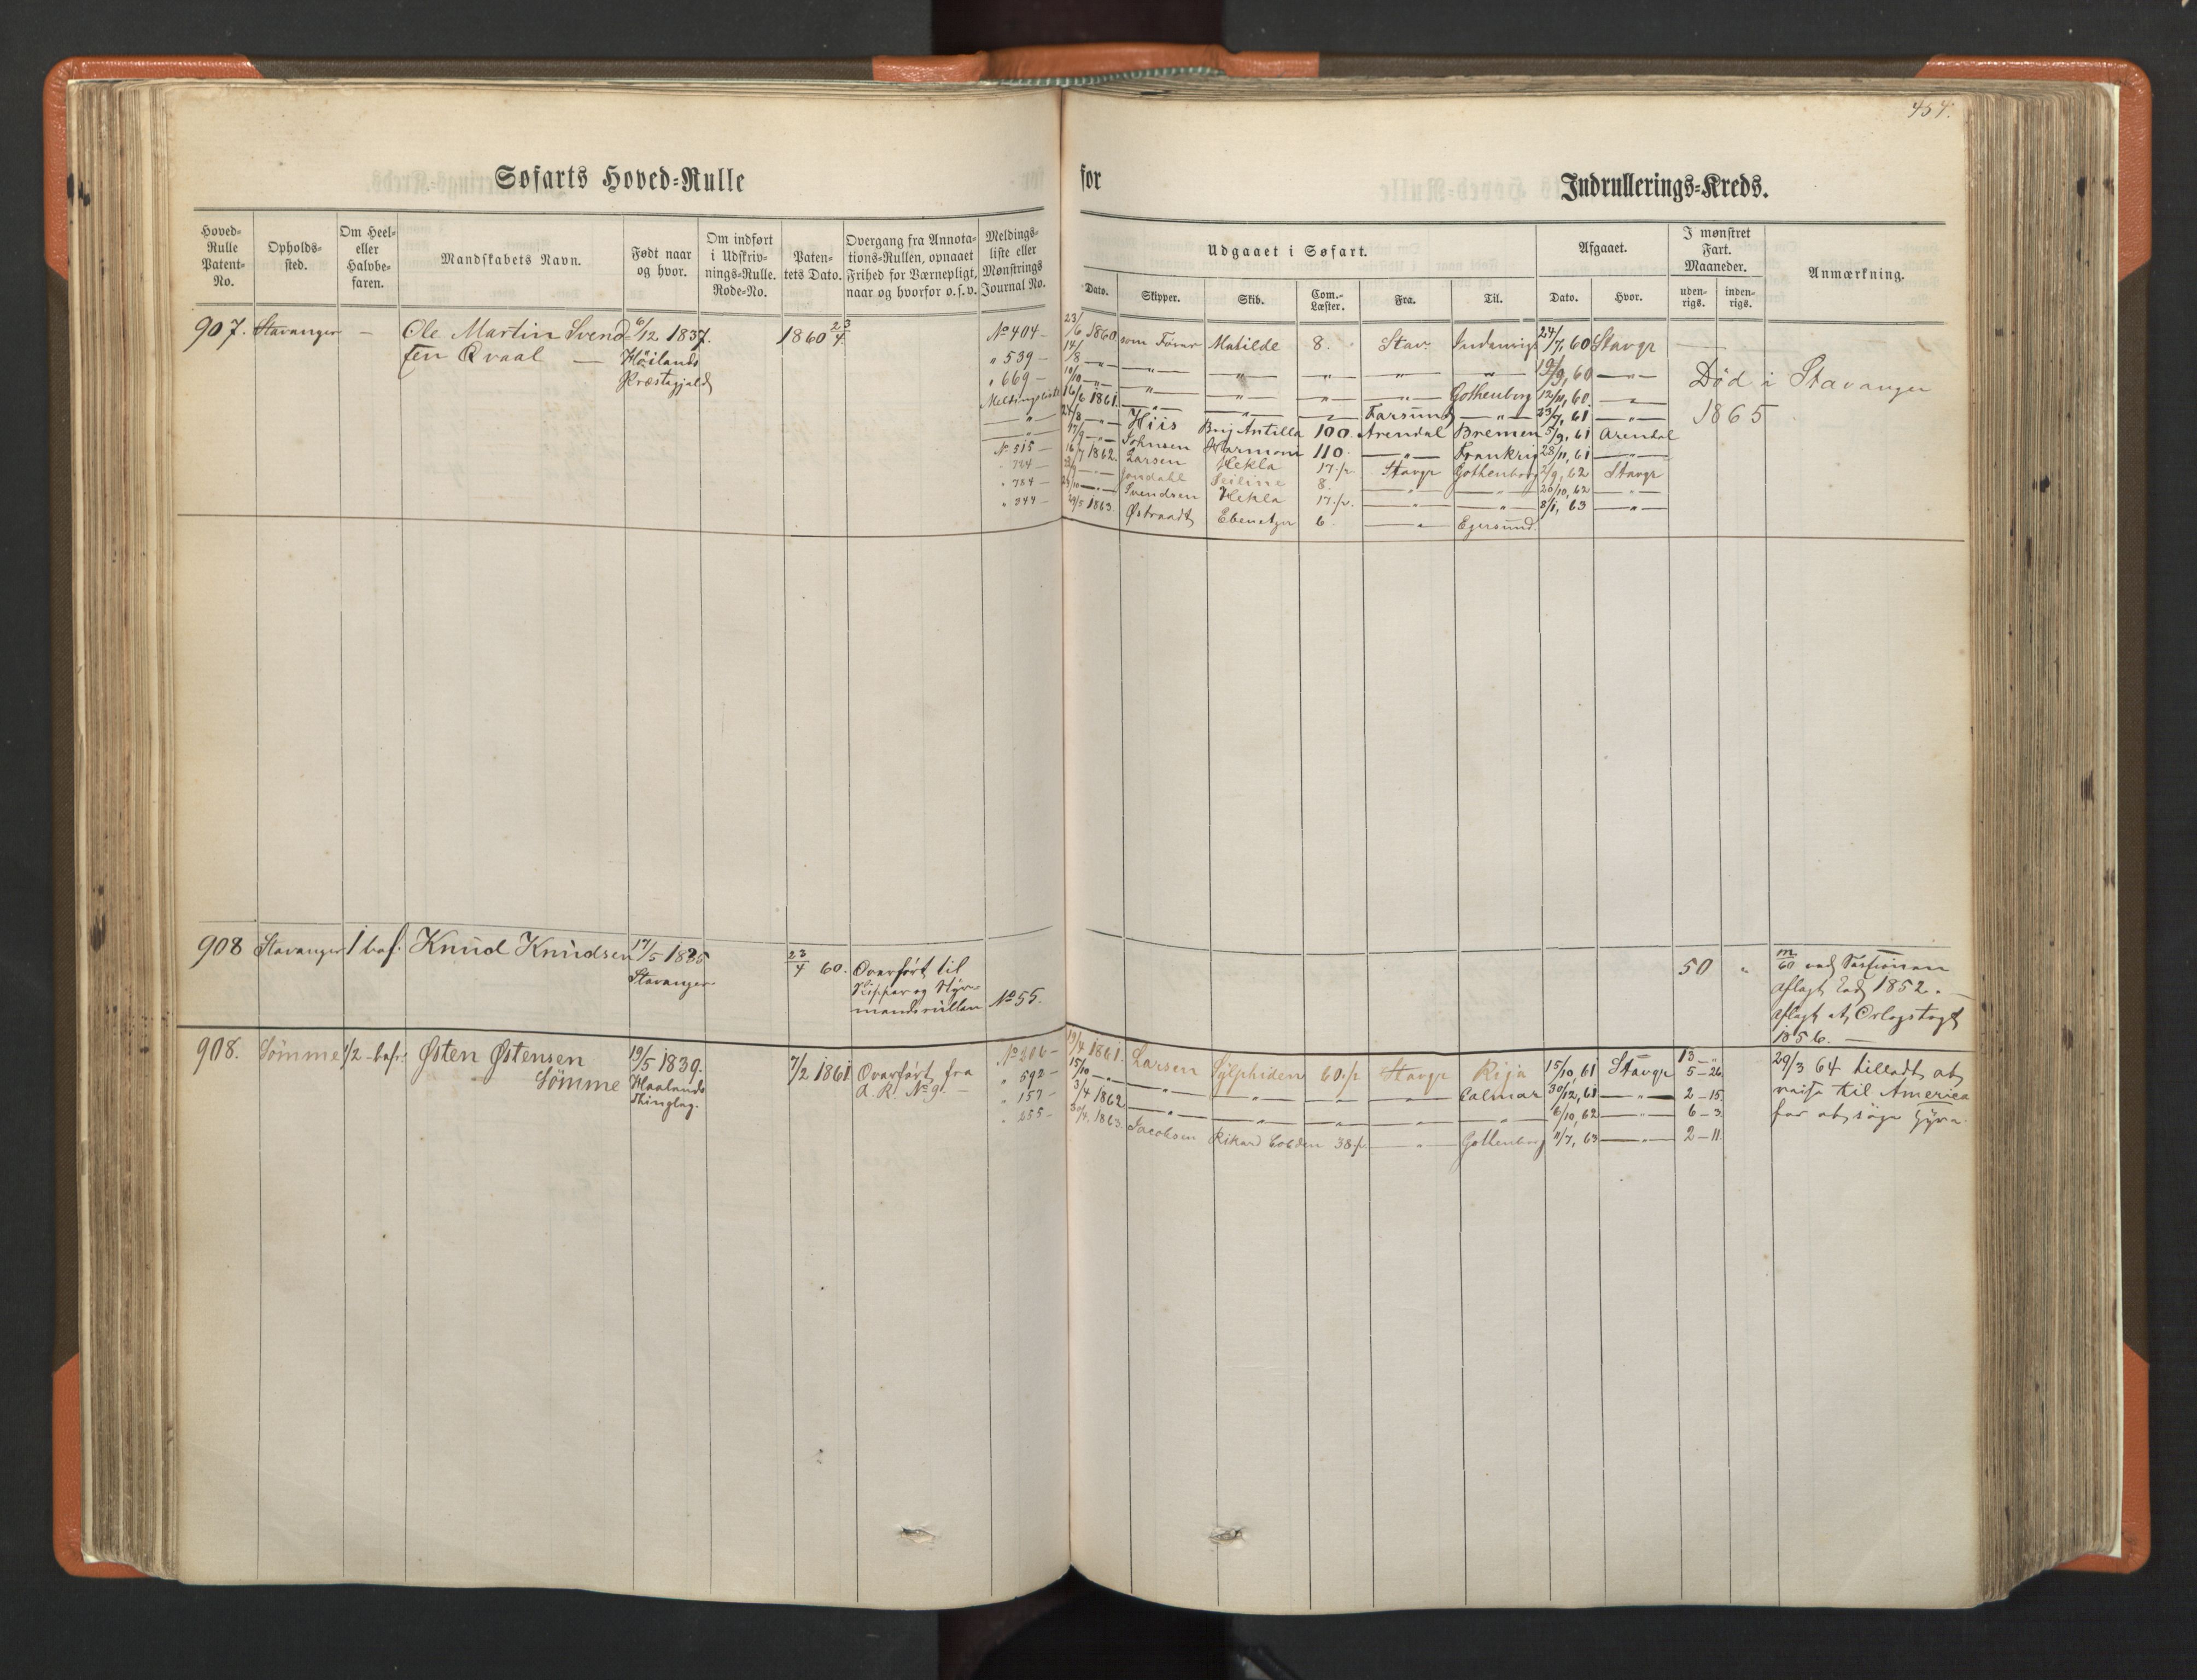 454.
Søfarts Hoved=Rulle
for
Indrullerings=Kreds.
Hoved= Rulle Patent= No.
Opholds= sted.
Om Heel= eller Halvbe= faren.
Mandskabets Navn.
Født naar og hvor.
Om indført i Udskriv= nings-Rulle. Rode=No.
Paten= tets Dato.
Overgang fra Annota= tions-Rullen, opnaaet Frihed for Værnepligt, naar og hvorfor o.s.v.
Meldings= liste eller Mønstrings Journal No.
Udgaaet i Søfart.
Dato.
Skipper.
Skib.
Com.= Læster.
Fra.
Til.
Afgaaet.
Dato.
Hvor.
I mønstret Fart. Maaneder.
uden= rigs.
inden= rigs.
Anmærkning.
907. Stavanger — Ole Martin Svend= 6/12 1837. 1860 23/4 No 404 — 23/6 1860 som Fører Matilde 8. Stav. Indenrigs 24/7, 60 Stavgr
sen Qvaal — Höilands Præstegjeld
" 539 — 14/8 — " — " — " — " — " — " 19/9, 60 — " —
" 669 — 10/10 — " — " — " — " — " — Gothenborg 12/11, 60 — " —
Meldingsliste 16/6 1861 — " — " — " Farsund — " — 23/7, 61 — " —
— " — 24/8 — " — Hiis Brig Antilla 100. Arendal Bremen 5/9, 61 Arendal
— " — 17/9 — " — Johnsen Harmoni 110. — " — Frankrig 28/11, 61 — " —
No 515 — 16/7 1862. Larsen Hekla 17.p. Stavgr Gothenborg 2/9, 62 Stavgr
" 724 — Jondahl Seiline 8. — " — " — 26/10, 62 — " —
" 784 — 29/10 — " — Svendsen Hekla 17.p. — " — " — 8/1, 63 — " —
" 344 — 29/5 1863. Østraadt Ebenetzer 6. — " — Egersund.
Död i Stavanger
1865
908 Stavanger 1 bef. Knud Knudsen 17/5 1835 Stavanger 23/4 60. Overført til Skipper og Styr= mandsrullen No 55. 50 "
60 ved Sessionen
aflagt Eed 1852. —
aflagt et Orlogstogt
1856. —
908. Sömme 1/2 - bef. Østen Østensen 19/5 1839. 7/2 1861 Overført fra No 206 — 19/4 1861. Larsen Sylphiden 60.p. Stavgr Riga 15/10, 61 Stavgr 13 — "
Sömme Haalands Thinglag. A. R. No 9. —
" 592 — 15/10 — " — " — " — " — " — Calmar 30/12, 61 — " — 5 — 26
" 157 — 3/4 1862. — " — " — " — " — " 6/10, 62 — " — 2 — 15
" 255 — 30/4 1863. Jacobsen Rikard Cobden 38.p. — " — Gothenborg 11/7, 63 — " — 6 — 3
2 — 11.
29/3 64 tilladt at
reise til America
for at søge Hyre.